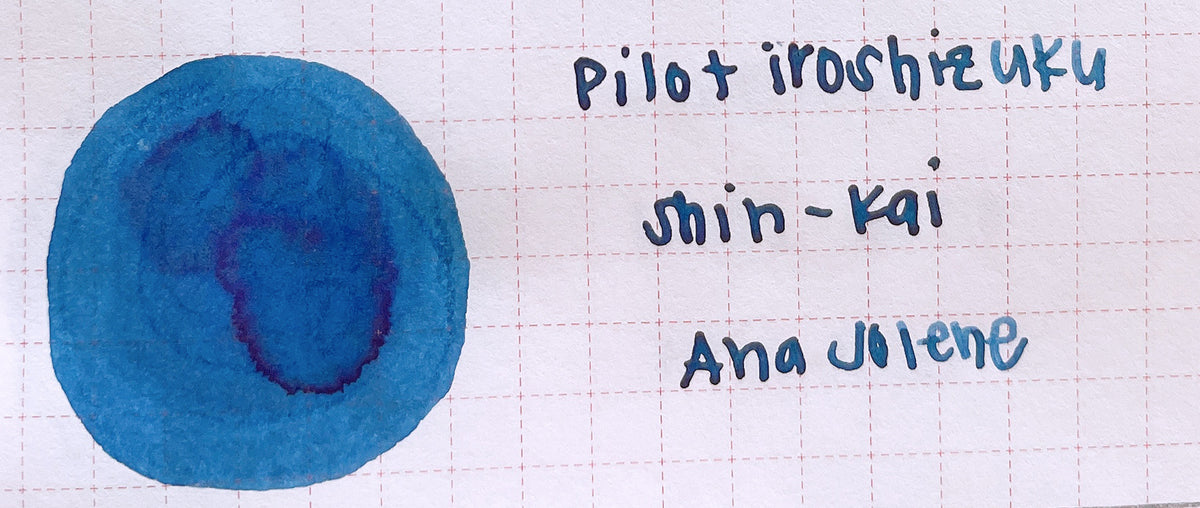 Pilot iroshizuku
shin-kai
Ana Jolene